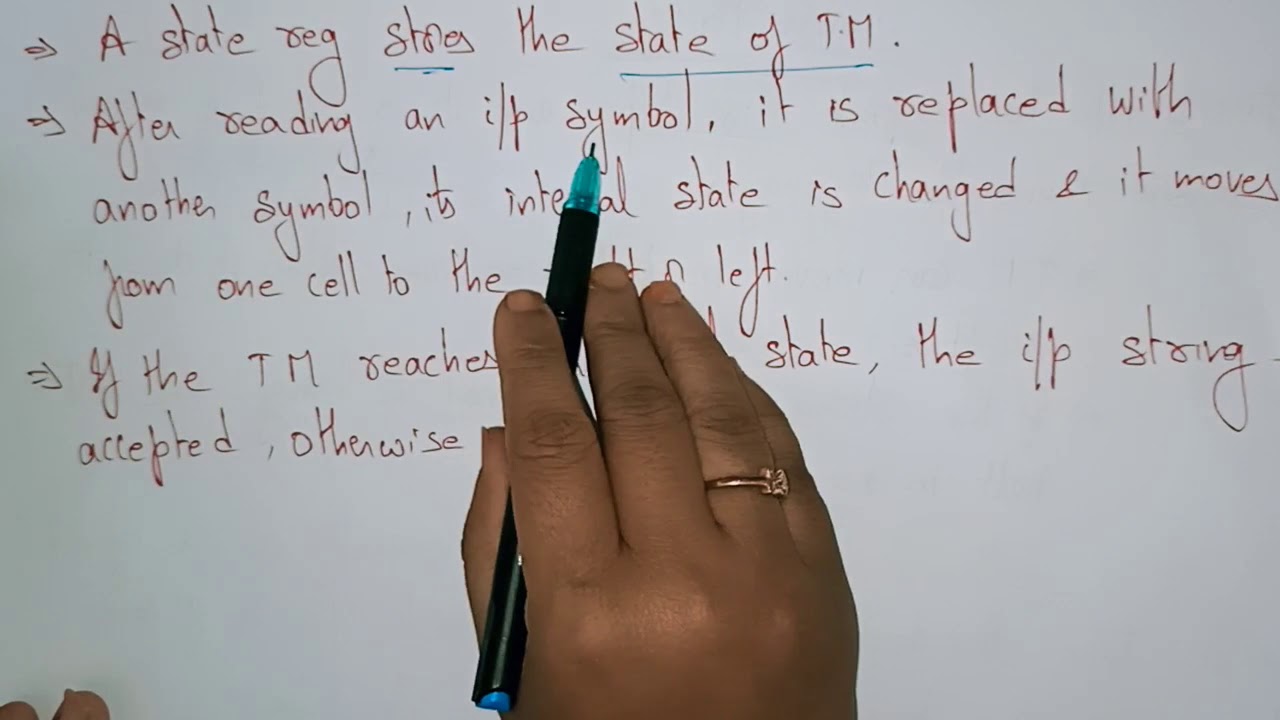 ⇒ A state reg stores the state of T.M.
⇒ After reading an i/p symbol, it is replaced with
another symbol, its internal state is changed & it moves
from one cell to the left.
⇒ If the TM reaches state, the i/p string
accepted, otherwise